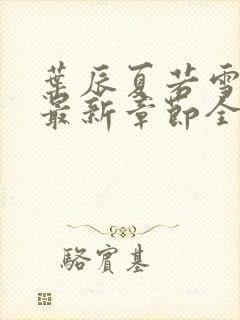 葉辰夏若雪
最新章節全
駱賓基